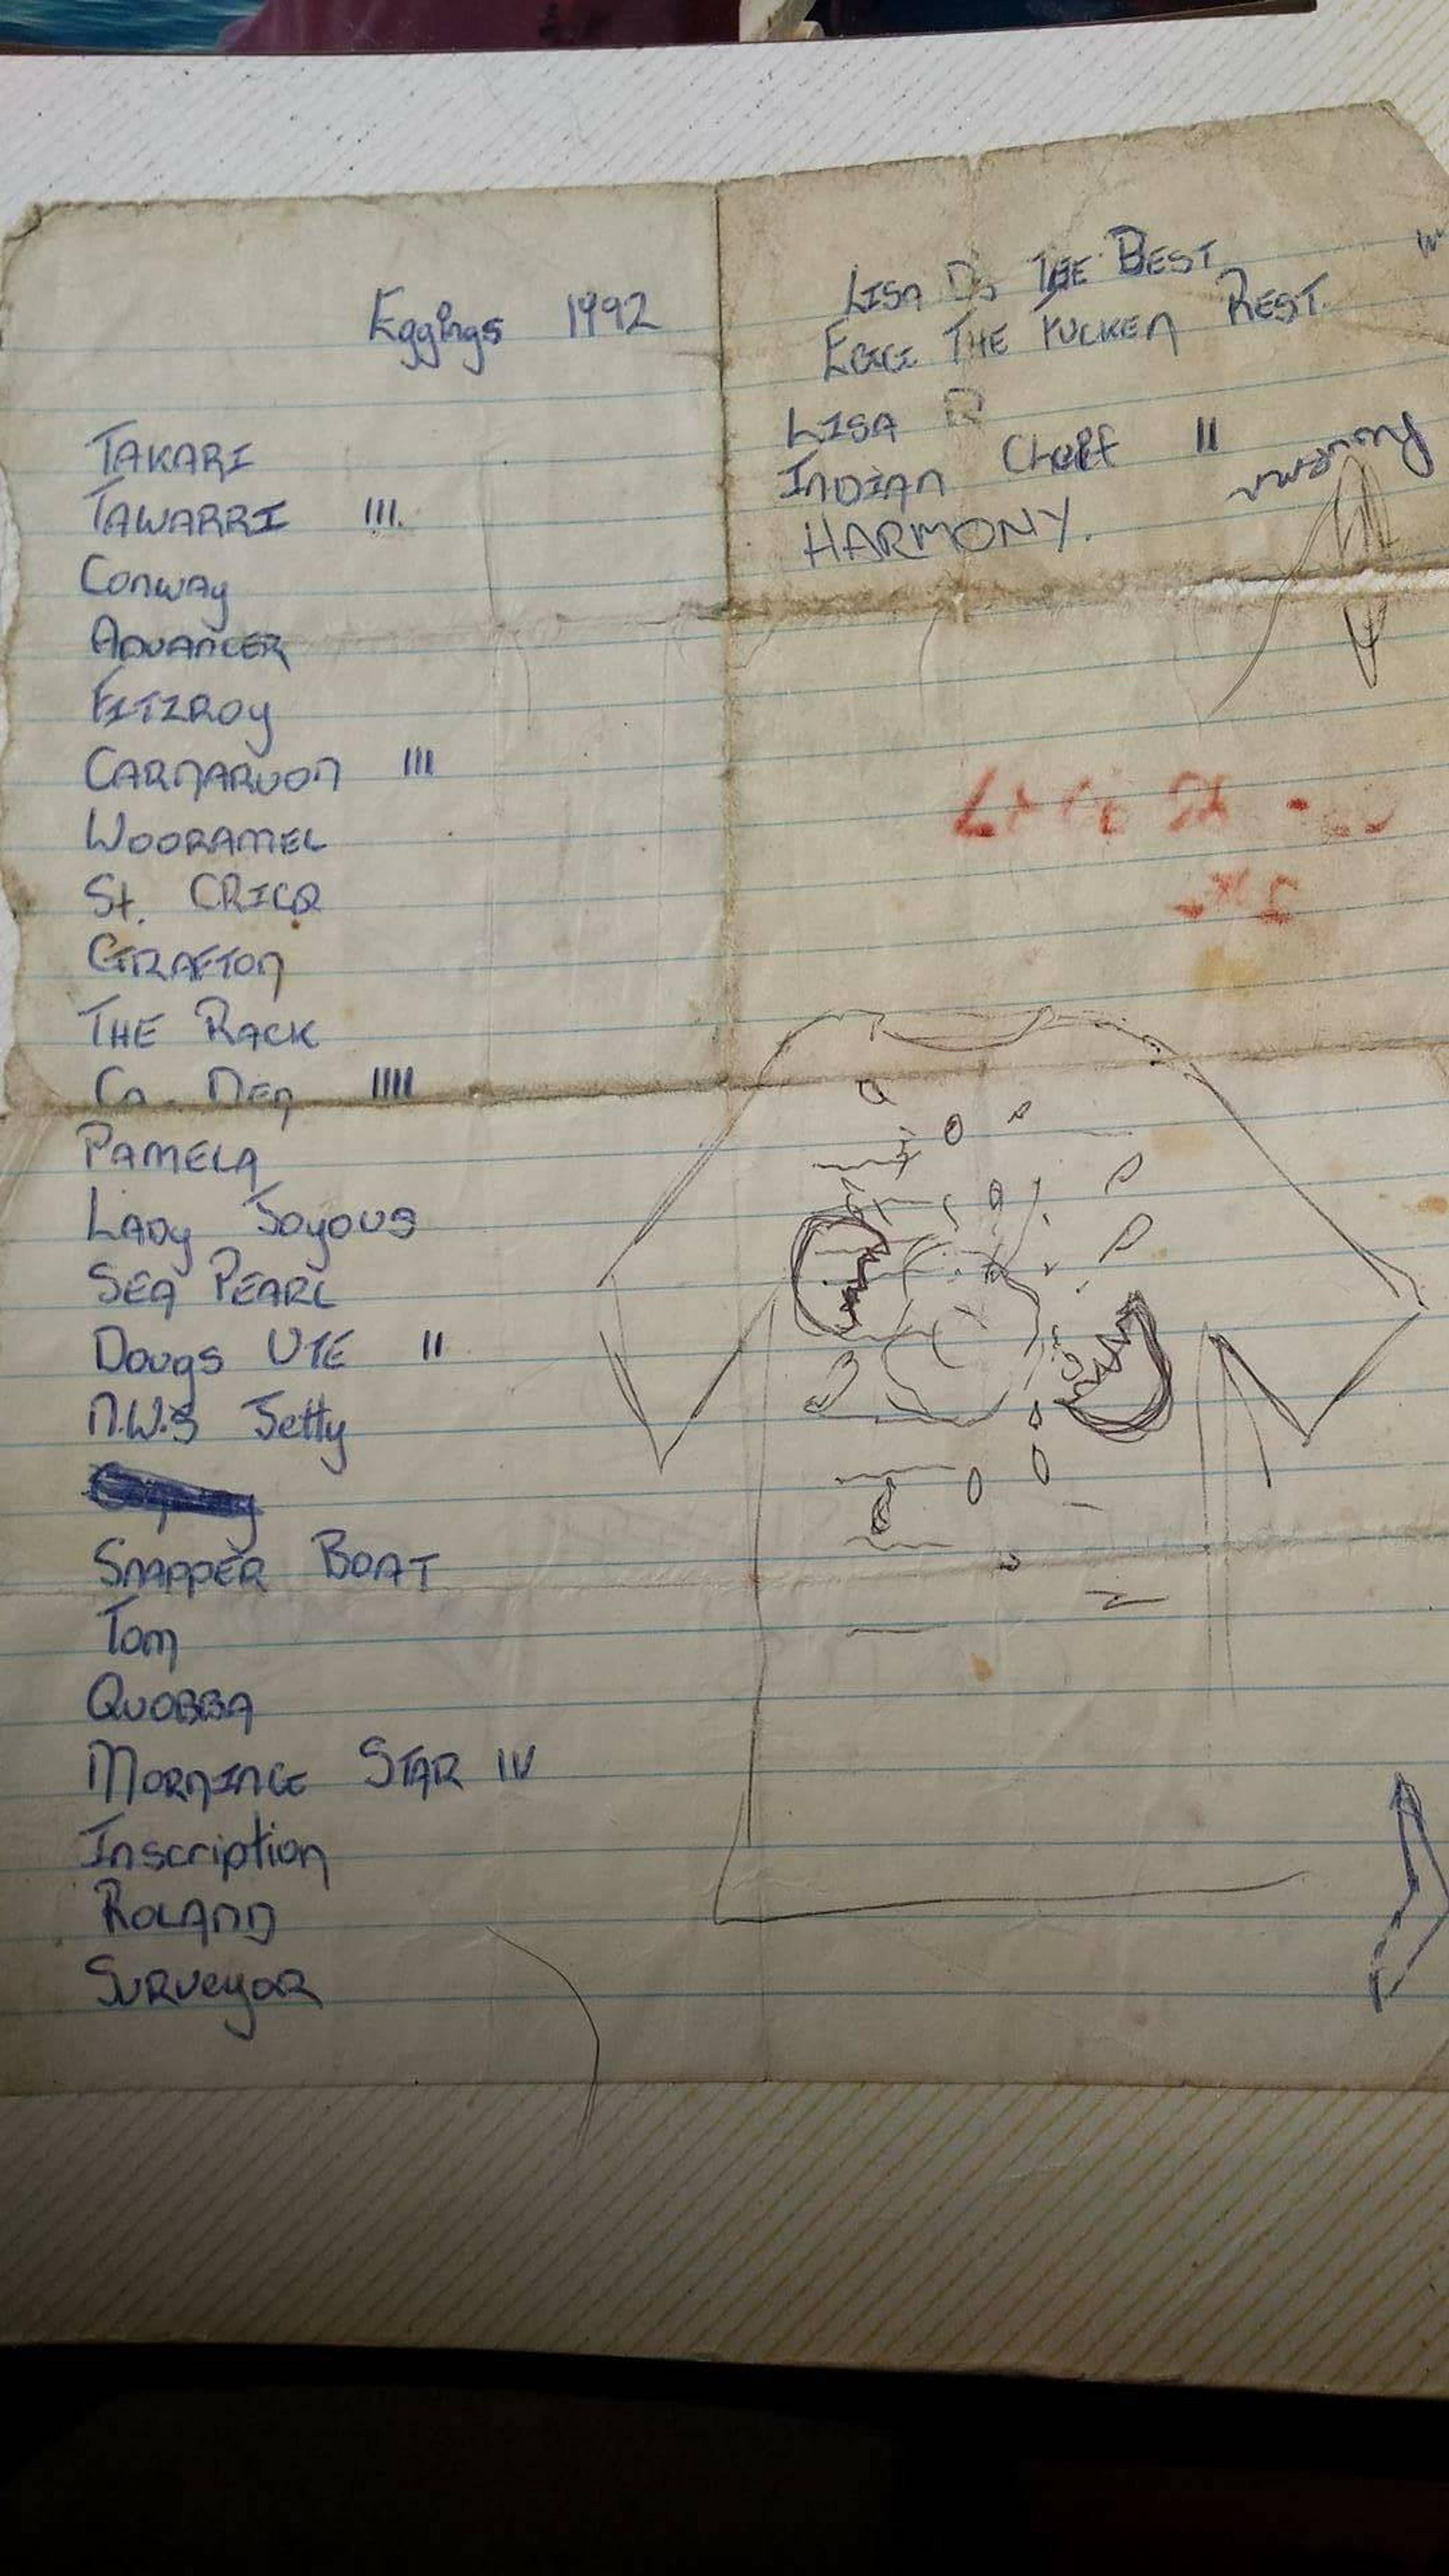 Eggings 1992
TAKARI
TAWARRI III.
Conway
ADVANCER
FITZROY
CARNARVON III
WOORAMEL
St. CRICQ
GRAFTON
THE RACK
Co. Den IIII
PAMELA
LADY Joyous
SEA PEARL
Dougs UTE II
N.W.S Jetty
SNAPPER BOAT
Tom
QUOBBA
MORNINGE STAR IV
Inscription
ROLAND
SURVEYOR
LISA IS THE BEST
EGGE THE FUCKEN REST.
LISA
INDIAN CHEIF II
HARMONY.